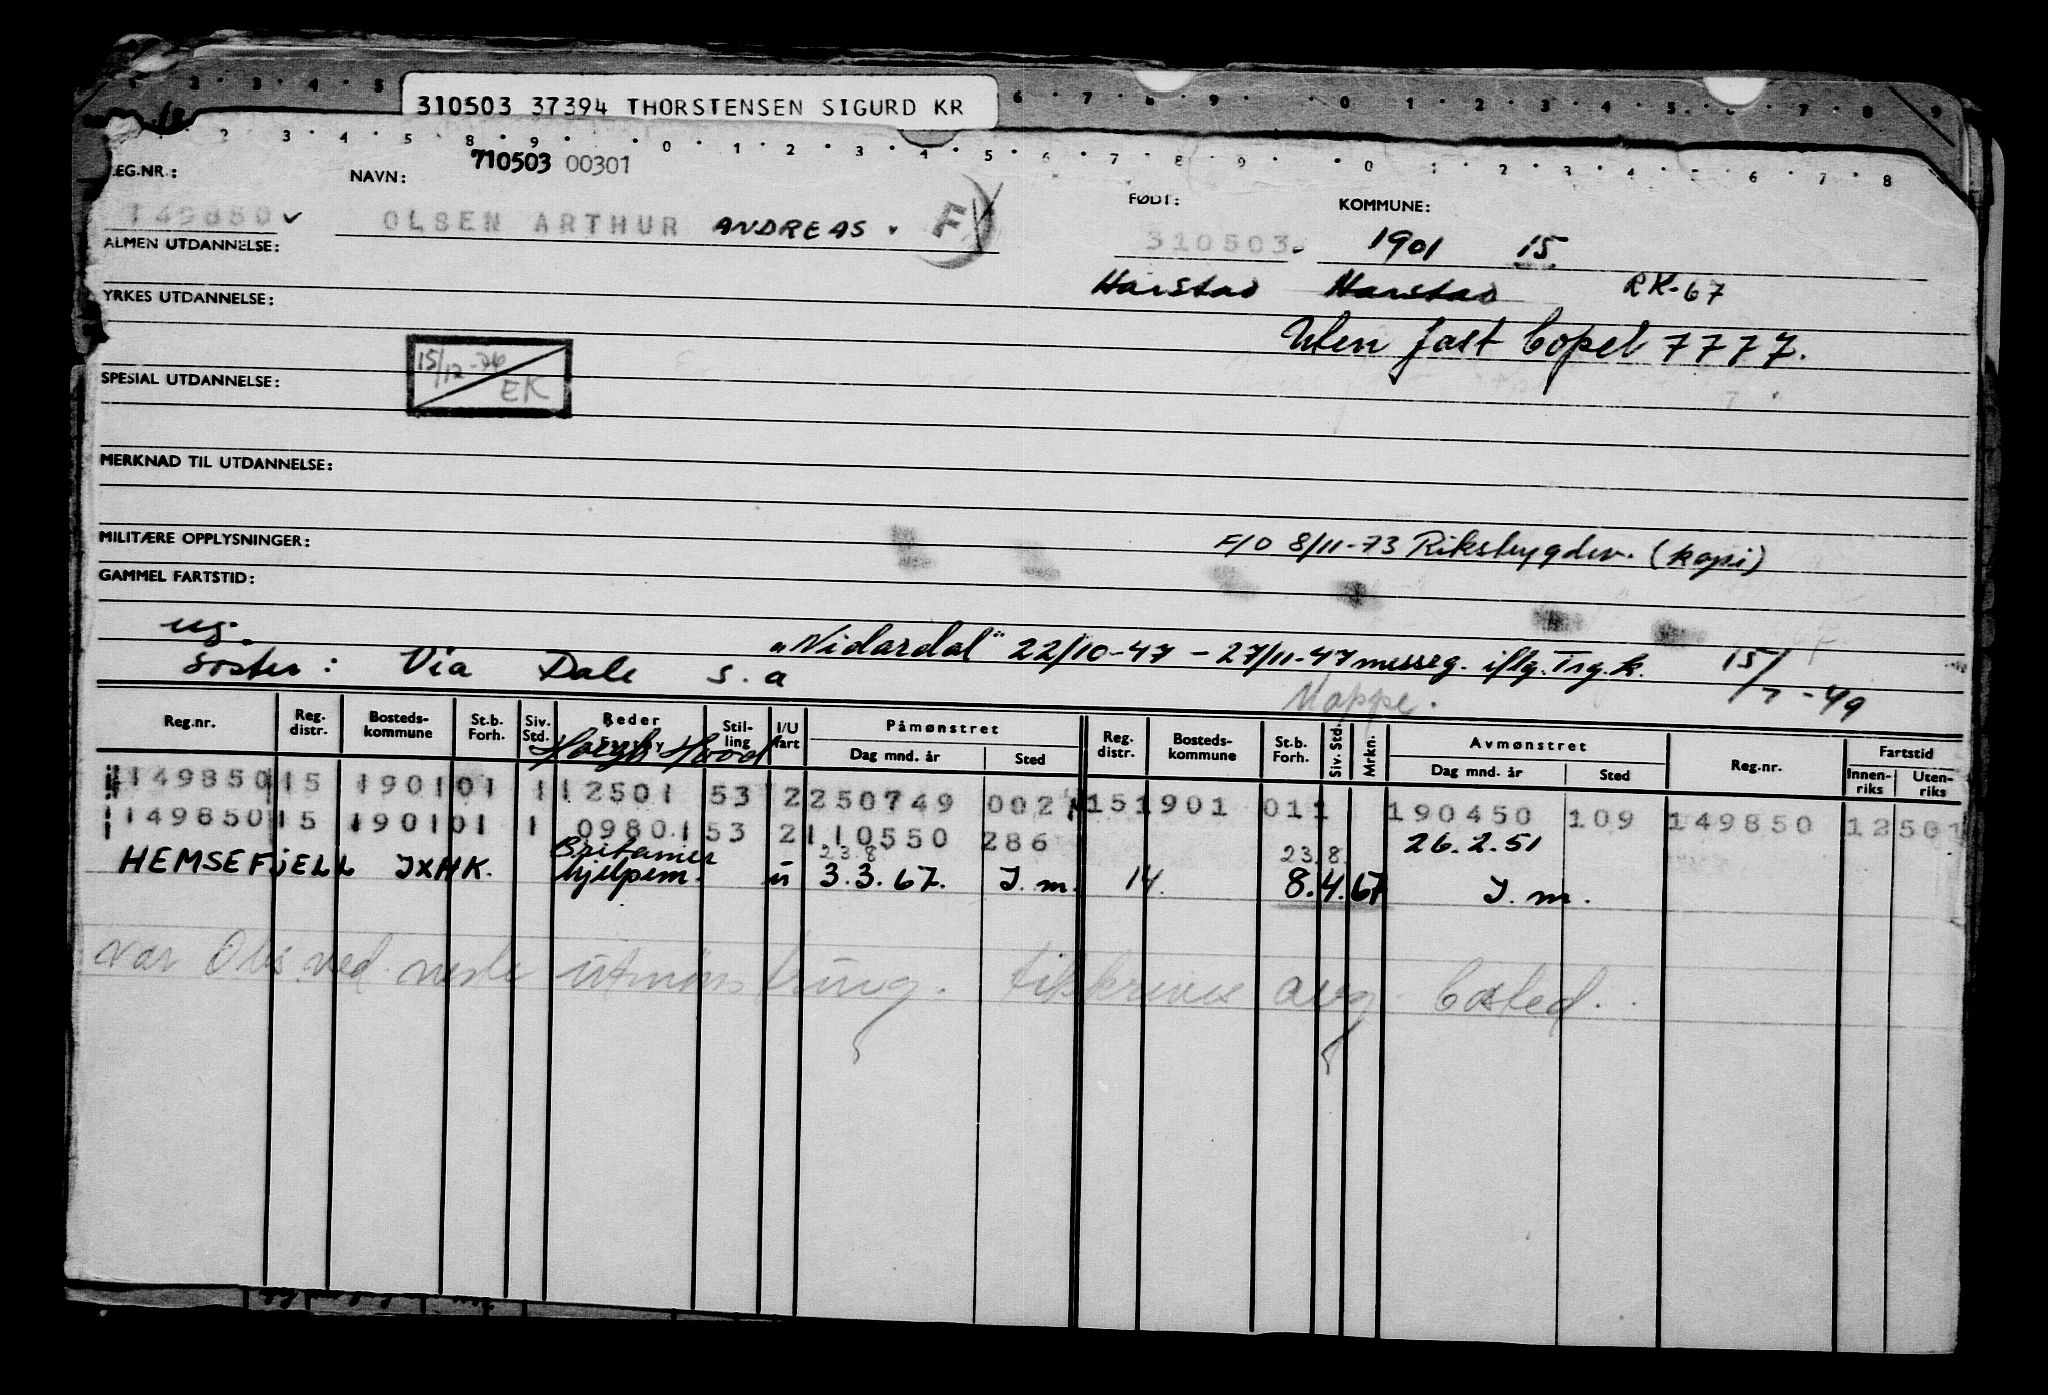 1 2 3 4 5 6 7 8 9 0 1 2 3 4 5 6 7 8 9
310503 37394 THORSTENSEN SIGURD KR
2 3 4 5 8 9 0 1 2 3 4 5 6 7 8 9 0 1 2 3 4 5 6 7 8
REG.NR.: NAVN: 710503 00301 FØDT: KOMMUNE:
149850 OLSEN ARTHUR ANDREAS. F 310503 1901 15
ALMEN UTDANNELSE:
Harstad Harstad RK-67
YRKES UTDANNELSE:
Uten fast bopel 7777.
15/12-76 EK
SPESIAL UTDANNELSE:
MERKNAD TIL UTDANNELSE:
MILITÆRE OPPLYSNINGER: F/O 8/11-73 Riksbygdev. (kopi)
GAMMEL FARTSTID:
ug.
søster: Via Dale s.a "Nidardal" 22/10-47 - 27/11-47 messeg. iflg. Trg.k. 15/7-49
Mappe.
Reg.nr. Reg. distr. Bosteds-kommune St.b. Forh. Siv. Std. Reder Stil-ling I/U fart Påmønstret Dag mnd. år Sted Reg. distr. Bosteds-kommune St.b. Forh. Siv. Std. Mrkn. Avmønstret Dag mnd. år Sted Reg.nr. Fartstid Innen-riks Uten-riks
149850 15 1901 01 1 12501 53 2 250749 002 15 1901 01 1 190450 109 149850 12501
149850 15 1901 01 1 09801 53 2 110550 286 26.2.51
23.8 23.8.
HEMSEFJELL JXHK. Britamer hjelpem. u 3.3.67. J.m. 14 8.4.67 J.m.
var Obs ved neste utmønstring. tilskrives ang. bosted.